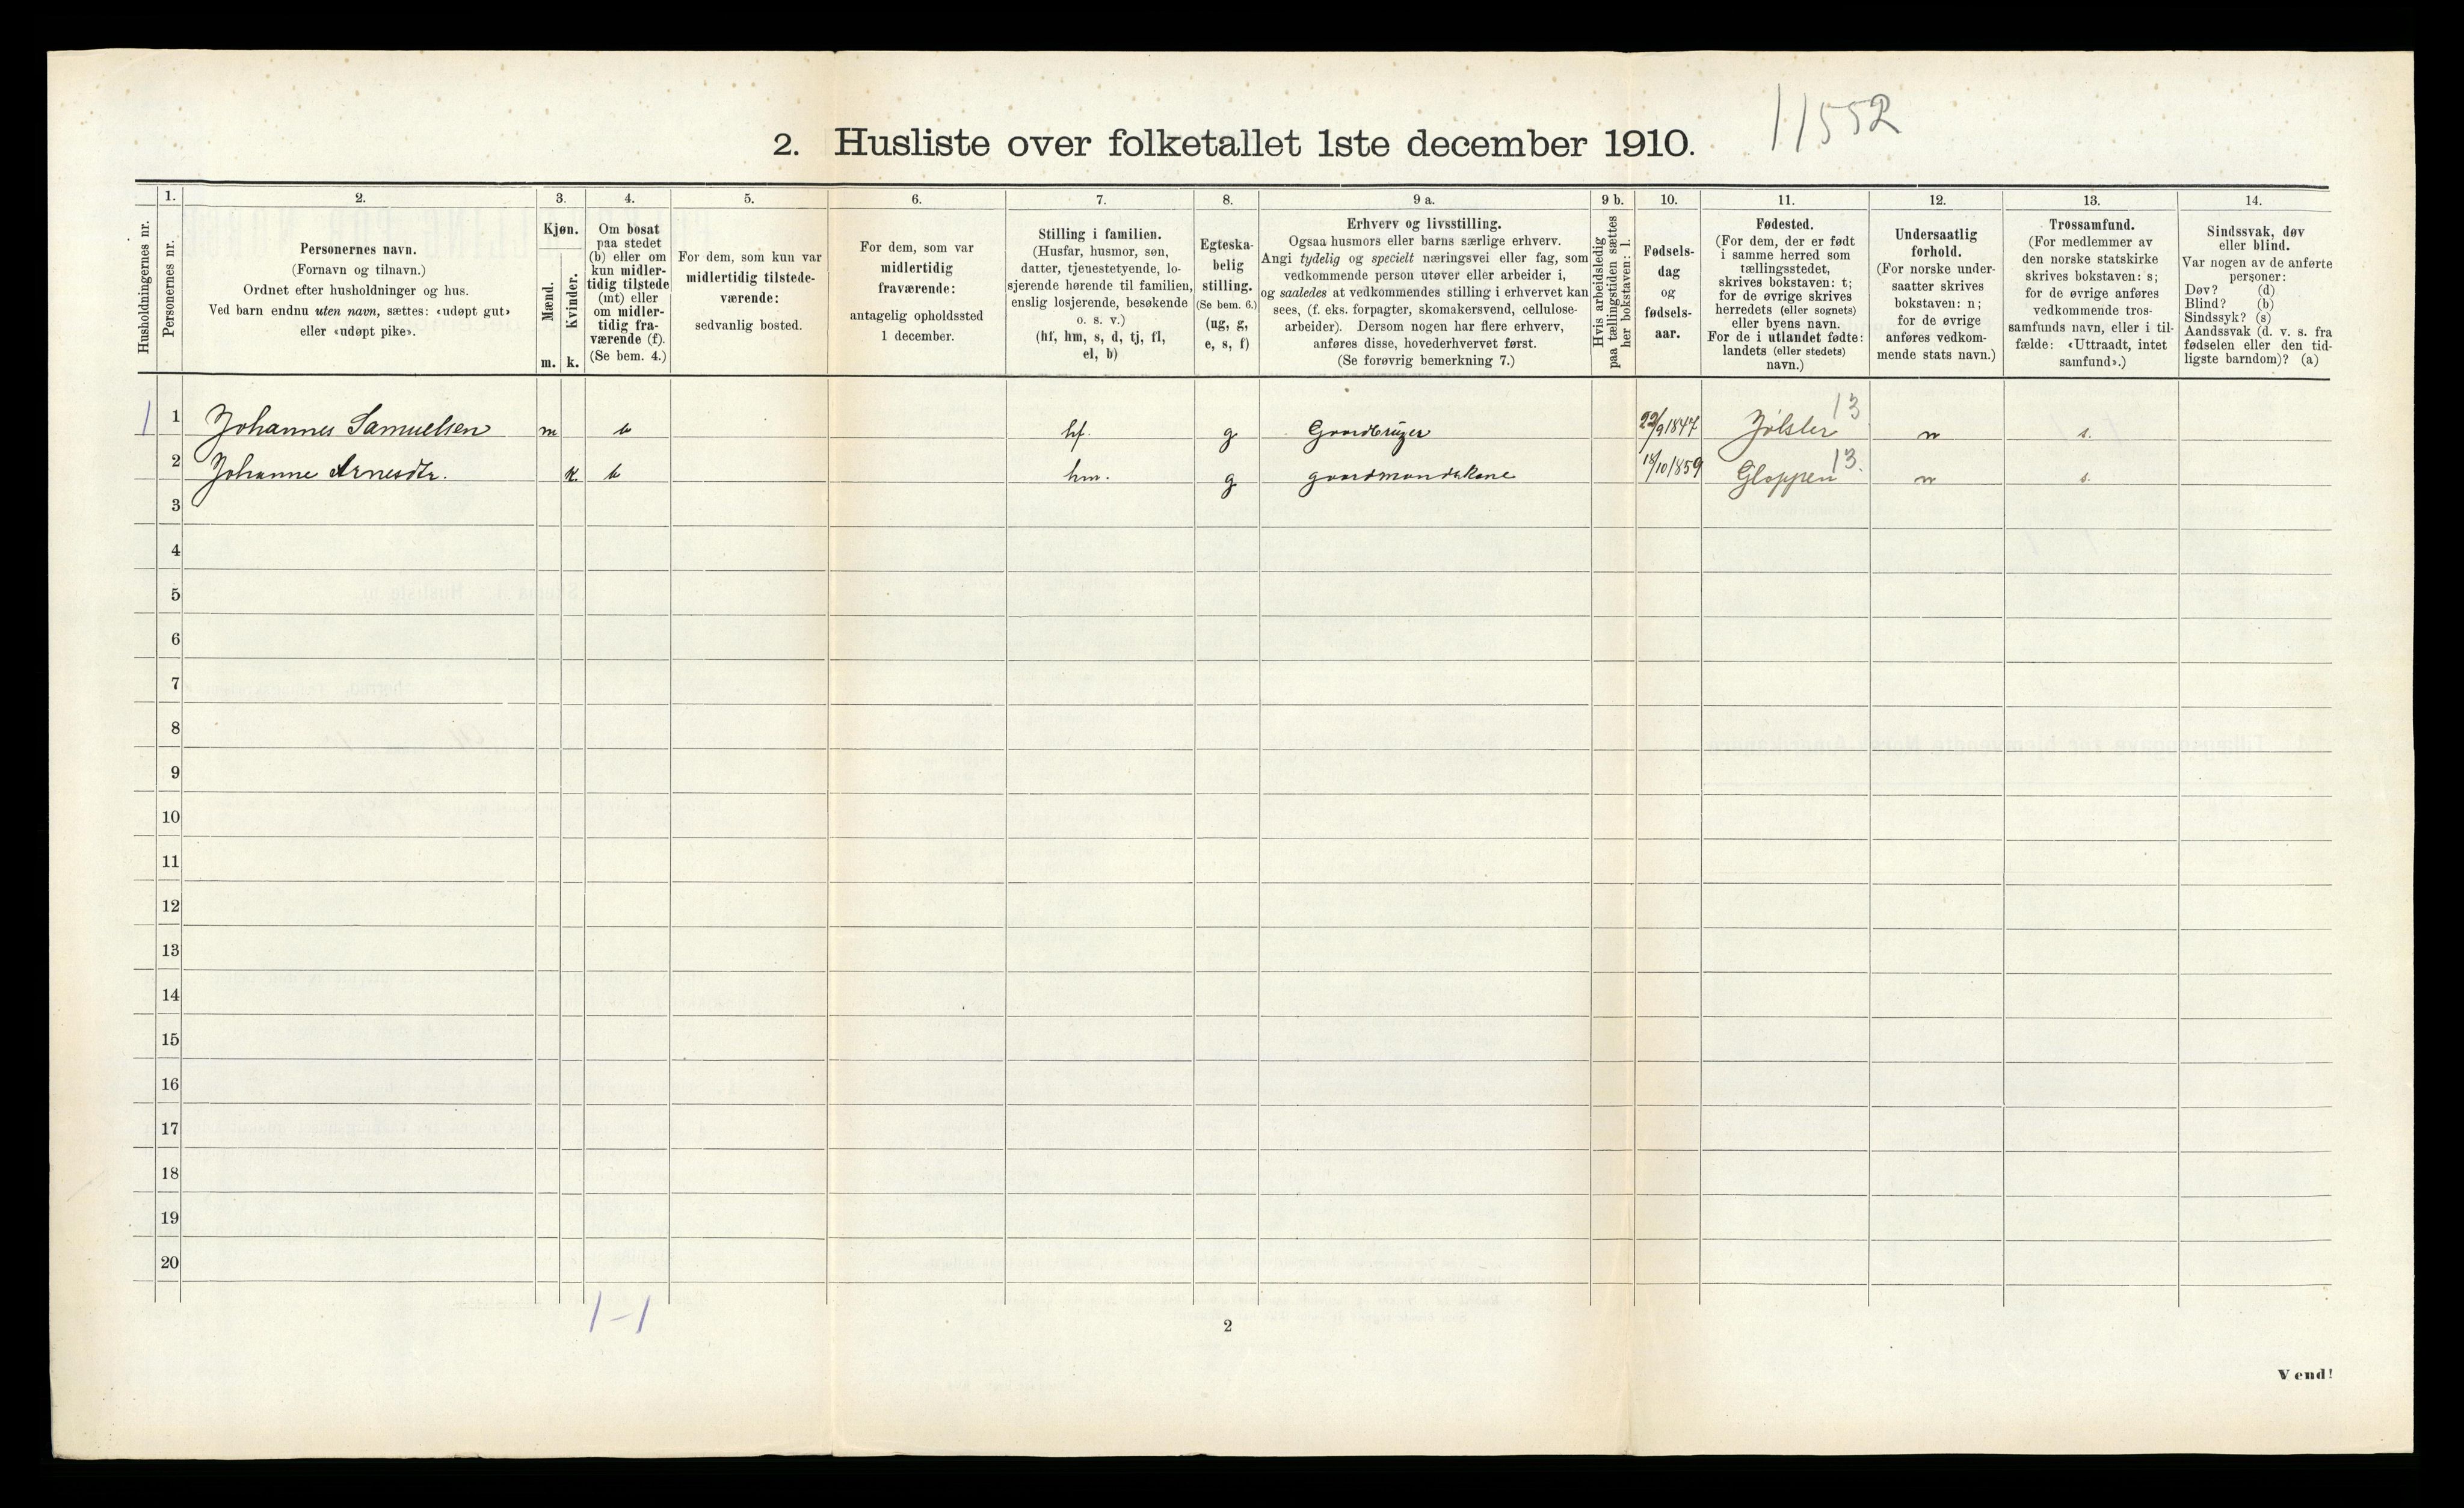 11552
2. Husliste over folketallet 1ste december 1910.
Husholdningernes nr.
1.
Personernes nr.
2.
Personernes navn.
(Fornavn og tilnavn.)
Ordnet efter husholdninger og hus.
Ved barn endnu uten navn, sættes: «udøpt gut»
eller «udøpt pike».
3.
Kjøn.
Mænd.
m.
Kvinder.
k.
4.
Om bosat
paa stedet
(b) eller om
kun midler-
tidig tilstede
(mt) eller
om midler-
tidig fra-
værende (f).
(Se bem. 4.)
5.
For dem, som kun var
midlertidig tilstede-
værende:
sedvanlig bosted.
6.
For dem, som var
midlertidig
fraværende:
antagelig opholdssted
1 december.
7.
Stilling i familien.
(Husfar, husmor, søn,
datter, tjenestetyende, lo-
sjerende hørende til familien,
enslig losjerende, besøkende
o. s. v.)
(hf, hm, s, d, tj, fl,
el, b)
8.
Egteska-
belig
stilling.
(Se bem. 6.)
(ug, g,
e, s, f)
9 a.
Erhverv og livsstilling.
Ogsaa husmors eller barns særlige erhverv.
Angi tydelig og specielt næringsvei eller fag, som
vedkommende person utøver eller arbeider i,
og saaledes at vedkommendes stilling i erhvervet kan
sees, (f. eks. forpagter, skomakersvend, cellulose-
arbeider). Dersom nogen har flere erhverv,
anføres disse, hovederhvervet først.
(Se forøvrig bemerkning 7.)
9 b.
Hvis arbeidsledig
paa tællingstiden sættes
her bokstaven: l.
10.
Fødsels-
dag
og
fødsels-
aar.
11.
Fødested.
(For dem, der er født
i samme herred som
tællingsstedet,
skrives bokstaven: t;
for de øvrige skrives
herredets (eller sognets)
eller byens navn.
For de i utlandet fødte:
landets (eller stedets)
navn.)
12.
Undersaatlig
forhold.
(For norske under-
saatter skrives
bokstaven: n;
for de øvrige
anføres vedkom-
mende stats navn.)
13.
Trossamfund.
(For medlemmer av
den norske statskirke
skrives bokstaven: s;
for de øvrige anføres
vedkommende tros-
samfunds navn, eller i til-
fælde: «Uttraadt, intet
samfund».)
14.
Sindssvak, døv
eller blind.
Var nogen av de anførte
personer:
Døv? (d)
Blind? (b)
Sindssyk? (s)
Aandssvak (d. v. s. fra
fødselen eller den tid-
ligste barndom)? (a)
1 1 Johannes Samuelsen m b hf. g Gaardbruger 22/9 1847 Jølster 13 n s.
2 Johanne Arnesdtr. k. b hm. g gaardmandskone 18/10 1859 Gloppen 13. n s.
3
4
5
6
7
8
9
10
11
12
13
14
15
16
17
18
19
20
1-1
2
Vend!